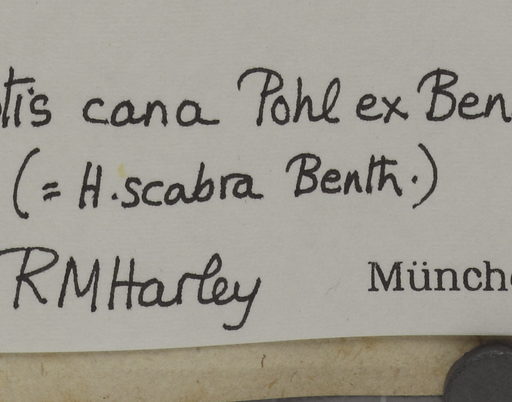 tis cana Pohl ex Ben
(= H. scabra Benth.)
RMHarley Münche